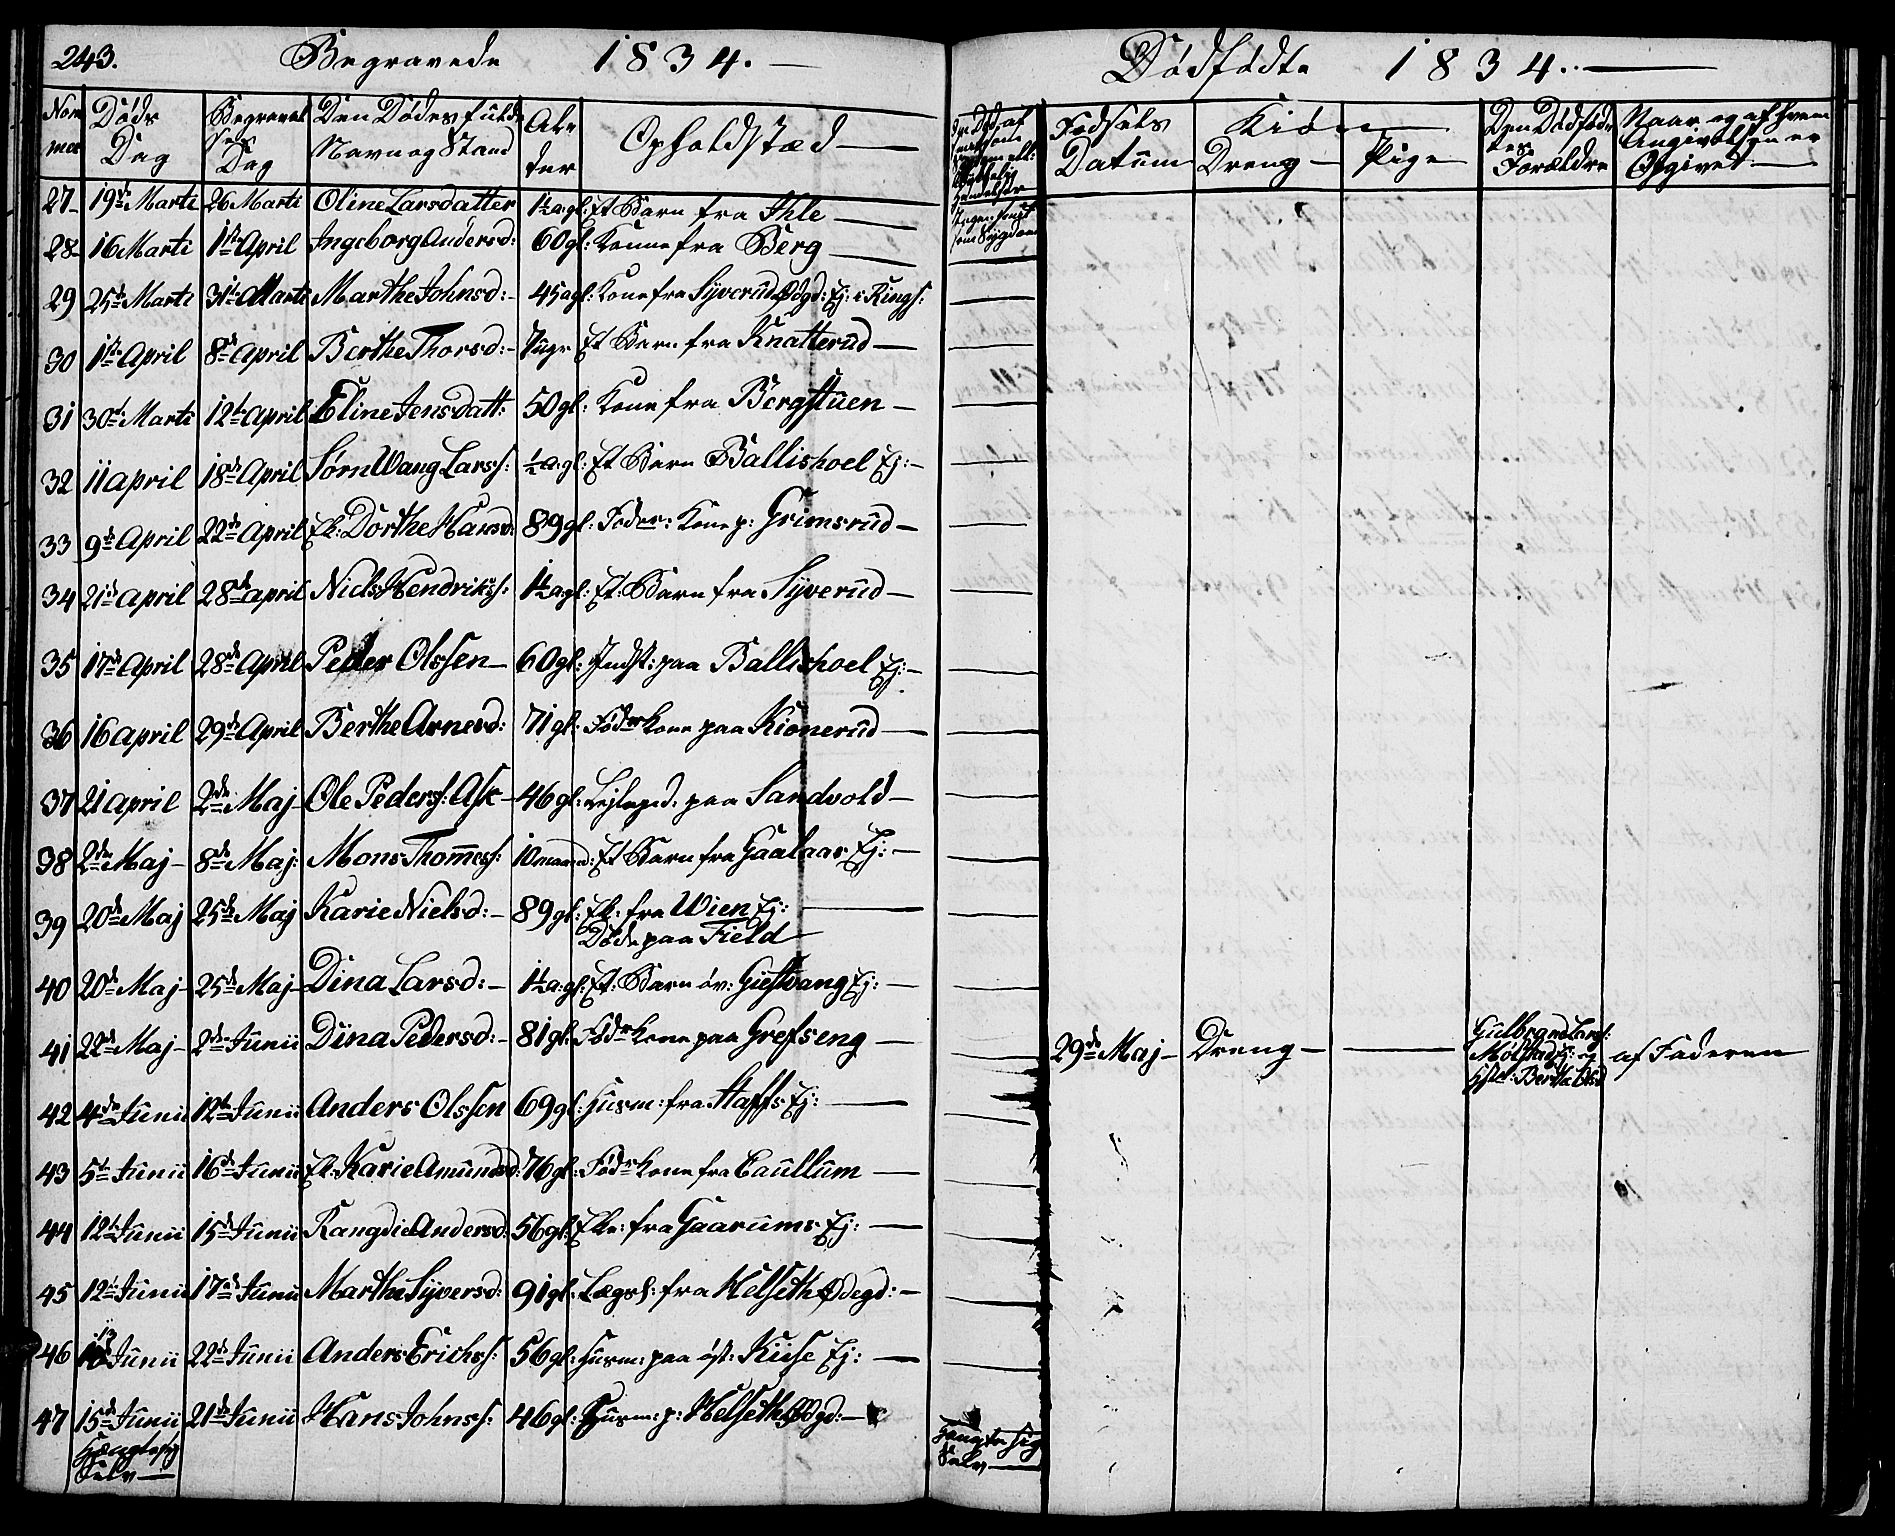 243. Begravede 1834.
Nommer Døds Dag Begravelses Dag Den Dødes fulde Navn og Stand Alder Opholdstæd
27 19de Marti 26 Marti Oline Larsdatter 1½ a: gl: Et Barn fra Ihle
28 16 Marti 1ste April Ingeborg Andersd: 60 gl: Konne fra Berg
29 25de Marti 31te Marti Marthe Johnsd: 45 a gl: Kone fra Syverud Ødgd: Ej: i Rings:
30 1ste April 8de April Berthe Thorsd: 7 uger Et Barn fra Knatterud
31 30te Marti 12te April Eline Jensdatt: 50 gl: Kone fra Bergstuen
32 11 april 18de April Sørn Wang Larss: ½ a: gl: Et Barn Ballishoel Ej:
33 9de April 22de April Ek: Dorthe Hansd: 89 gl: Føder: Kone p: Grimsrud
34 21de april 28de april Niels Hendrikss: 1½ a: gl: Et: Barn fra Syverud
35 17de April 28de April Peder Olssen 60 gl: Indst: paa Ballishoel Ej:
36 16 april 29de April Berthe Arnesd: 71 gl: Føder Kone paa Kionerud
37 21 april 2de Maj Ole Peders: Ask 46 gl: paa Sandvold
38 2de Maj 8de Maj: Mons Thomess: 10 maaned: Et Barn fra Gaalaas Ej:
39 20de Maj 25de Maj Karie Nielsd: 89 gl: Ek: fra Wien Ej:
Døde paa Field
40 20de Maj 25de Maj Dina Larsd: 1½ a: gl: Et: Barn øv: Giestvang Ej:
41 22de Maj 2de Junii Dina Pedersd: 81 gl: Føder Kone paa Grefseng
42 4de Junii 12te Junii Anders Olssen 69 gl: Husm: fra Staffs Ej:
43 5te Junii 16de Junii Ek: Karie Amundsd: 76 gl: Føder Kone fra Caullum
44 12te Junii 15de Junii Rangdie Andersd: 56 gl: Eke: fra Gaarums Ej:
45 12te Junii 17de Junii Marthe Syversd: 91 gl: Lægsl: fra Helseth Ødegd:
46 13 Junii 22de Junii Anders Erichss: 56 gl: Husm: paa øst: Kiise Ej:
47 15de Junii 21de Junii Hans Johnss: 46 gl: Husm: p: Helseth Ødgd:
Hængte sig
Selv
Dødfødte 1834.
Fødsels Datum Kiøn Dreng Pige Den Dødfødtes Forældre Naar og af hvem Angivelsen er Opgivet
Ingen smit
som Sygdom
29de Maj Dreng Gulbrand Larss:
Mølstad Ej: og
Hst: Berthe Olsd
af Faderen
Hængte sig
Selv